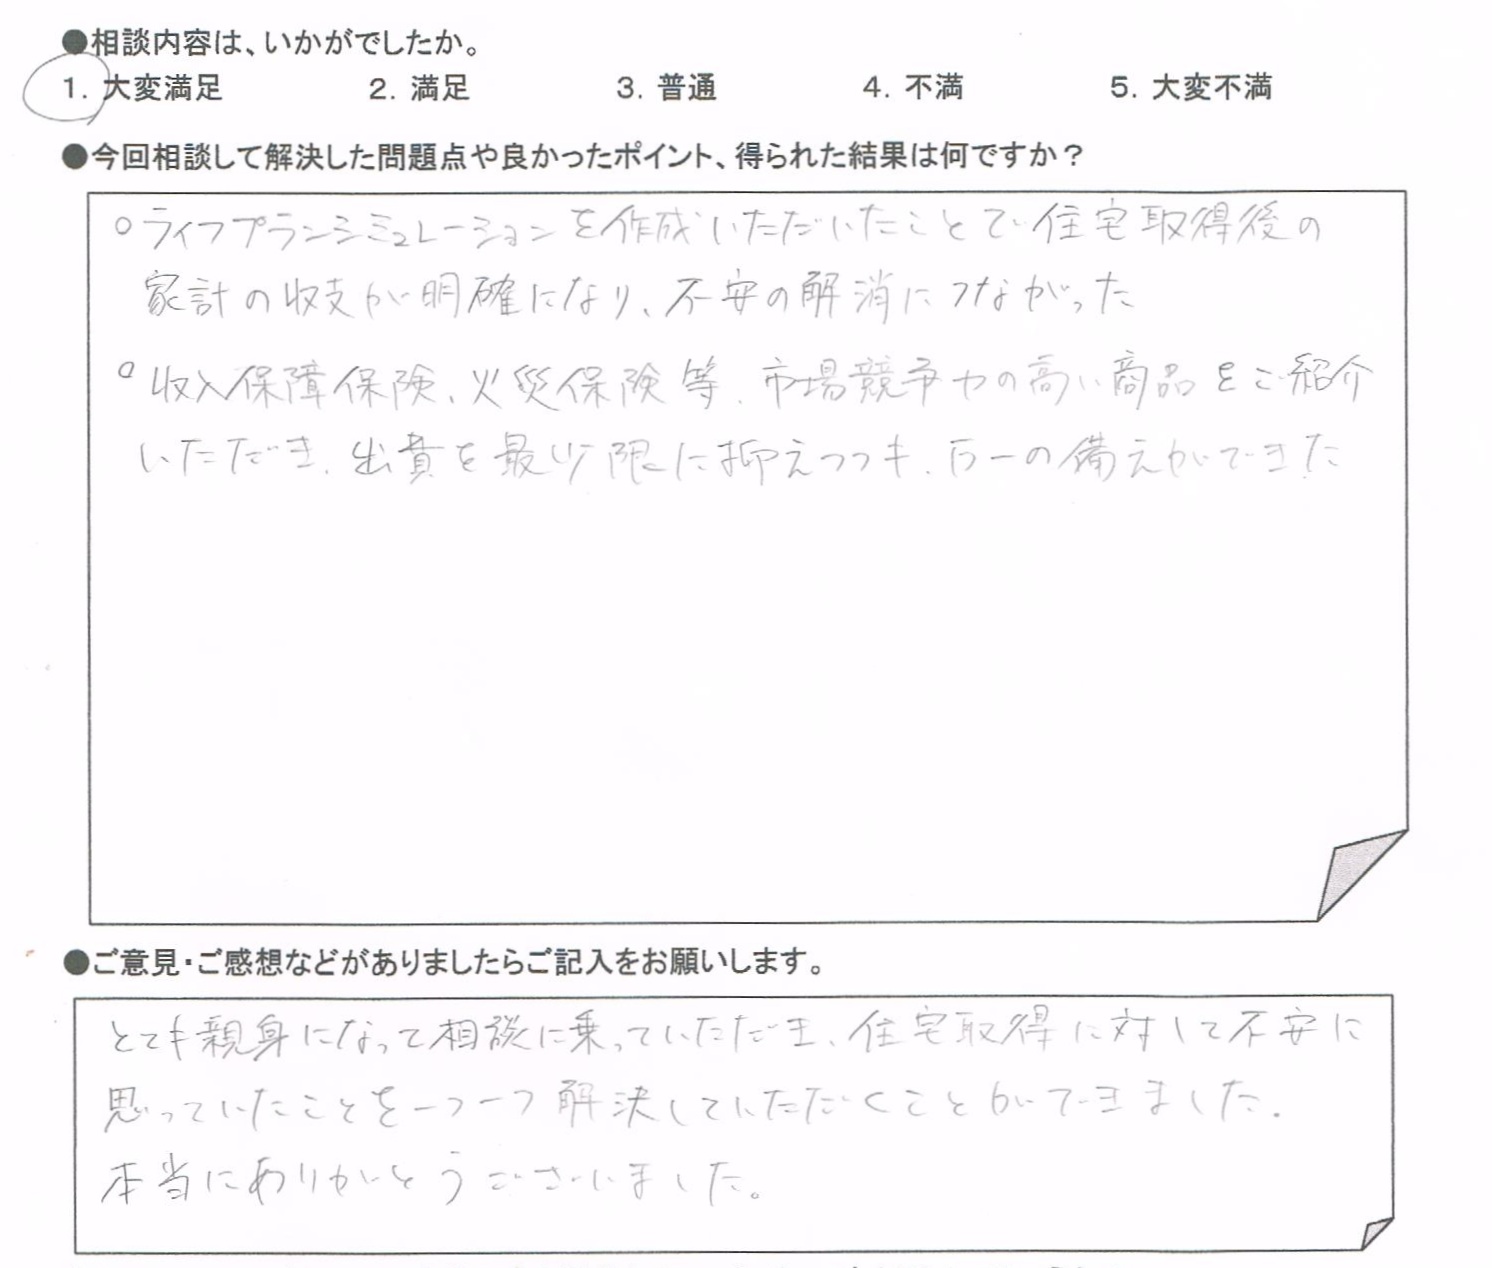 ●相談内容は、いかがでしたか。
1. 大変満足 2. 満足 3. 普通 4. 不満 5. 大変不満
●今回相談して解決した問題点や良かったポイント、得られた結果は何ですか？
○ライフプランシミュレーションを作成いただいたことで住宅取得後の
家計の収支が明確になり、不安の解消につながった
○収入保障保険、火災保険等、市場競争力の高い商品をご紹介
いただき、出費を最少限に抑えつつも、万一の備えができた
●ご意見・ご感想などがありましたらご記入をお願いします。
とても親身になって相談に乗っていただき、住宅取得に対して不安に
思っていたことを一つ一つ解決していただくことができました。
本当にありがとうございました。